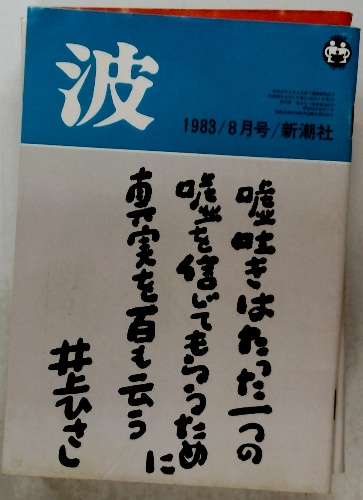 波
1983/8月号/新潮社
嘘吐きはたった一つの
嘘を信じてもらうために
真実を百も云う
井上ひさし